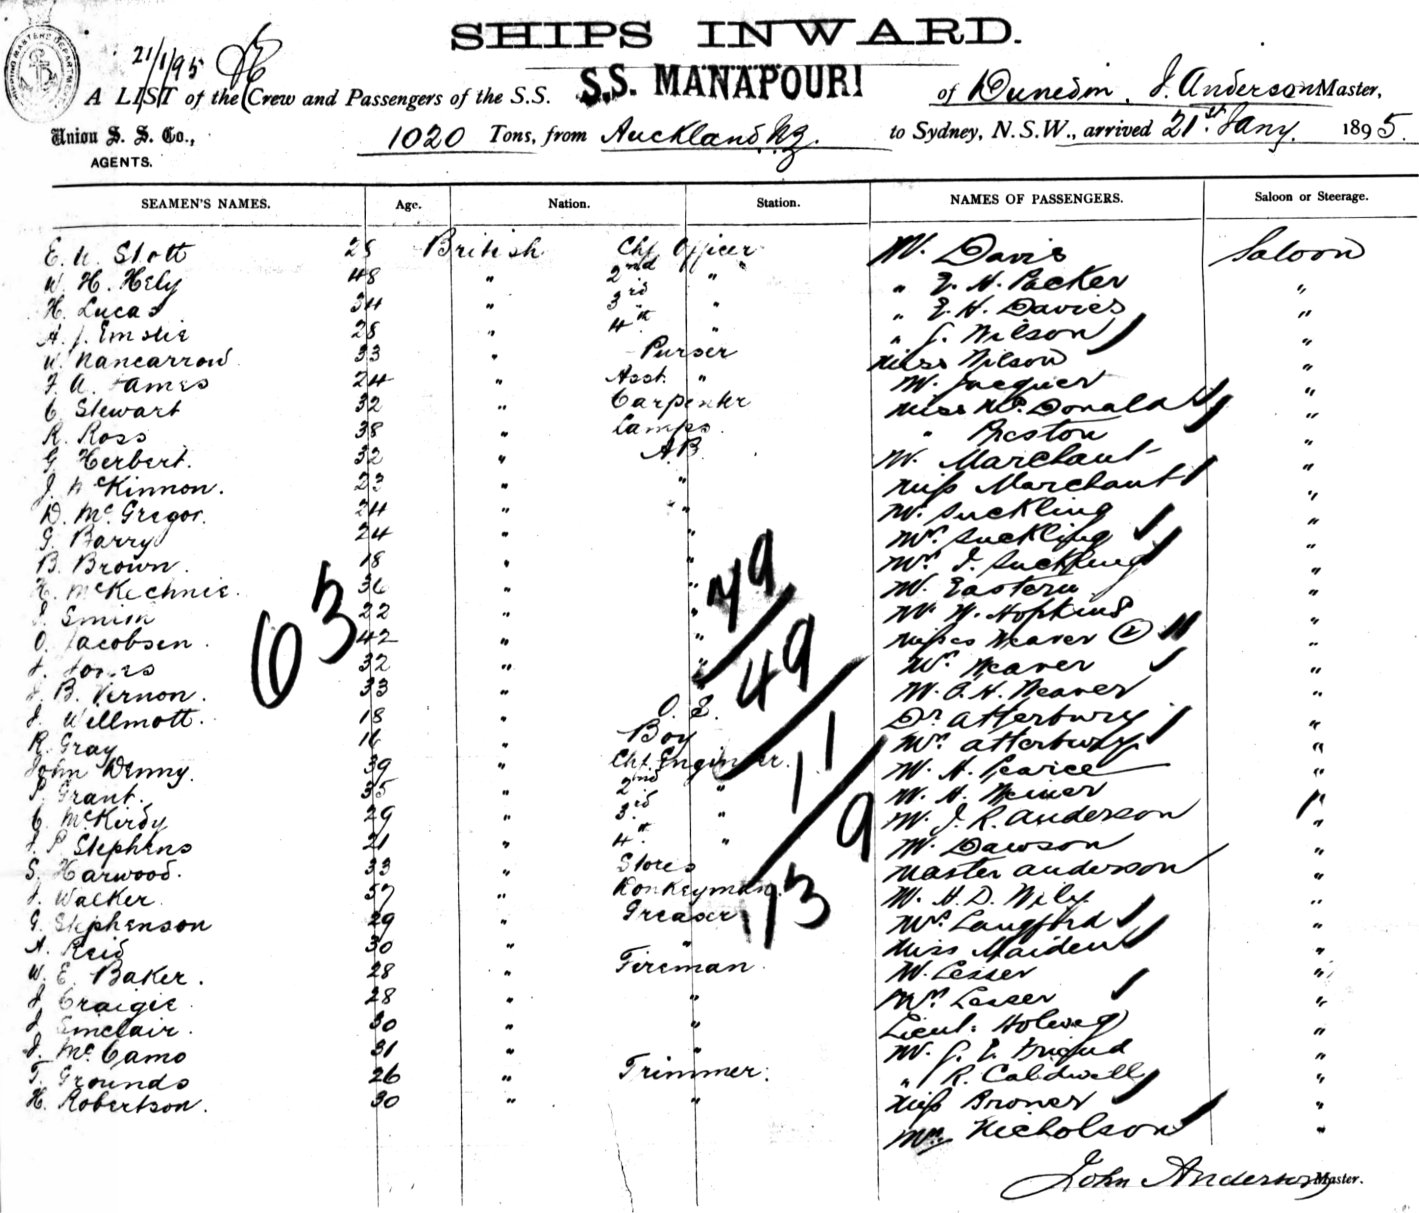 SHIPS INWARD.
21/1/95
A LIST of the Crew and Passengers of the S.S. S.S. MANAPOURI of Dunedin, J. Anderson Master,
Union S. S. Co., AGENTS. 1020 Tons, from Auckland NZ. to Sydney, N.S.W., arrived 21st Jany. 1895.
SEAMEN'S NAMES. Age. Nation. Station. NAMES OF PASSENGERS. Saloon or Steerage.
E. W. Stott 25 British Chf. Officer Mr. Davis Saloon
W. H. Hely 48 " 2nd " " E. H. Packer "
H. Lucas 34 " 3rd " " E. H. Davies "
A. J. Emslie 28 " 4th " " J. Wilson "
W. Nancarrow 33 " Purser Miss Wilson "
F. A. James 24 " Asst. " Mr. Jacquier "
C Stewart 32 " Carpenter Miss McDonald "
R. Ross 38 " Lamps. " Preston "
G Herbert. 32 " A.B. Mr. Marchant "
J. McKinnon. 23 " " Miss Marchant "
D. McGregor. 24 " " Mr. Suckling "
G. Barry 24 " " Mrs. Suckling "
B. Brown. 18 " " Mrs. J. Suckling "
McKechnie. 36 " " Mr. Eastern "
Smith 22 " " Mr W. Hopkins "
O. Jacobsen. 42 " " Misses Weaver (2) "
J. Jones 32 " " Mrs. Weaver "
J. B. Vernon. 33 " Mr. O. H. Weaver "
J. Willmott. 18 " O. S. Dr. Atterbury "
R. Gray 16 " Boy Mrs. Atterbury "
John Denny. 39 " Chf. Engineer. Mr. H. Pearce "
P. Grant. 35 " 2nd " Mr. H. "
C. McKirdy 29 " 3rd " Mr. J. R. Anderson "
J. P. Stephens 21 " 4th " Mr. Dawson "
S. Harwood. 33 " Stores Master Anderson "
J. Walker. 57 " Donkeyman. Mr. H. D. Wily "
G. Stephenson 29 " Greaser Mrs. Langford "
A. Reid 30 " " Miss Maiden "
W. E. Baker. 28 " Fireman. Mr. Lesser "
J. Craigie 28 " " Mrs. Lesser "
J. Sinclair. 30 " " Lieut. "
J. McCamo 31 " " Mr. J. E. "
T. Grounds 26 " Trimmer. " R. Caldwell "
H. Robertson. 30 " " Miss "
Mrs. Nicholson "
63
79
49
11
9
13
John Anderson Master.